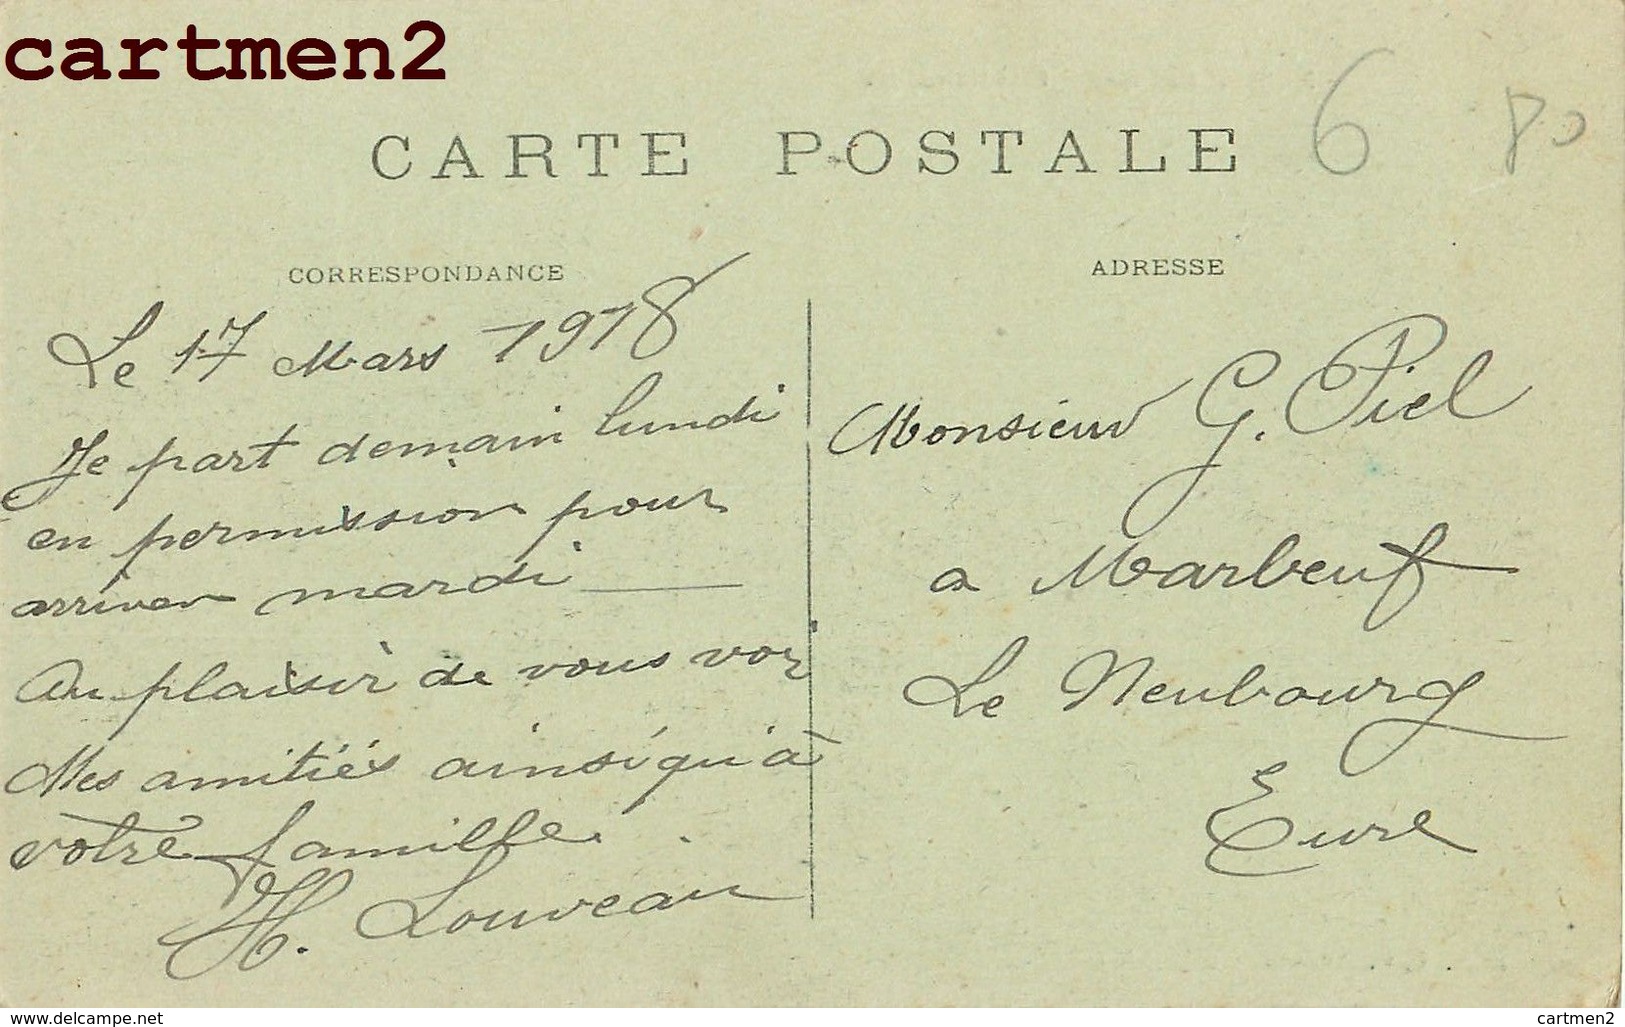 cartmen2
CARTE POSTALE
6 80
CORRESPONDANCE
Le 17 Mars 1918
Je part demain lundi
en permission pour
arriver mardi
Au plaisir de vous voir
Mes amitiés ainsi qu'à
votre famille.
H. Louveau
ADRESSE
Monsieur G. Piel
a Marbeuf
Le Neubourg
Eure
www.delcampe.net
cartmen2